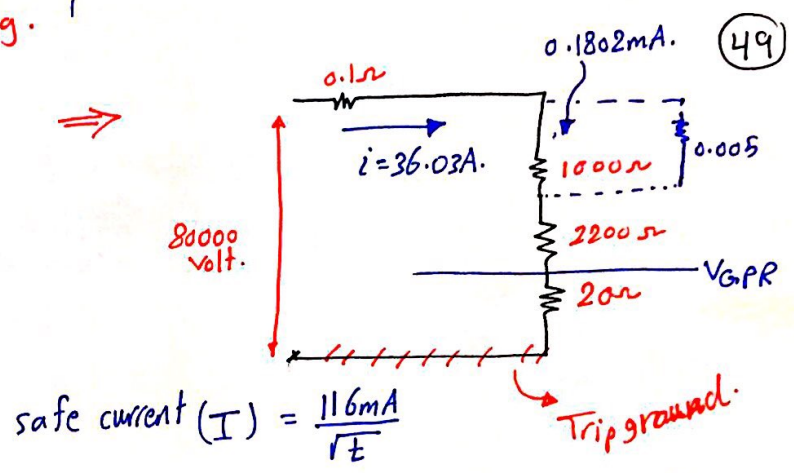 g.
49
0.1802mA.
0.1Ω
⇒
i=36.03A.
1000Ω
0.005
80000
volt.
2200Ω
VGPR
20Ω
safe current (I) = 116mA / √t
Trip ground.